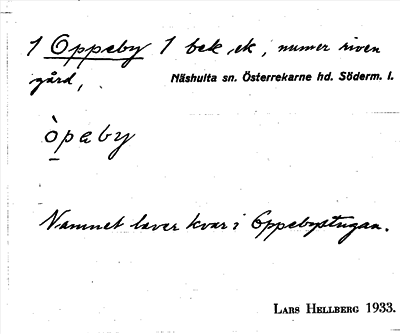 1 Oppeby 1 bek ek, numer riven
gård, Näshulta sn. Österrekarne hd. Söderm. l.
òpeby
Namnet lever kvar i Oppebystugan.
LARS HELLBERG 1933.